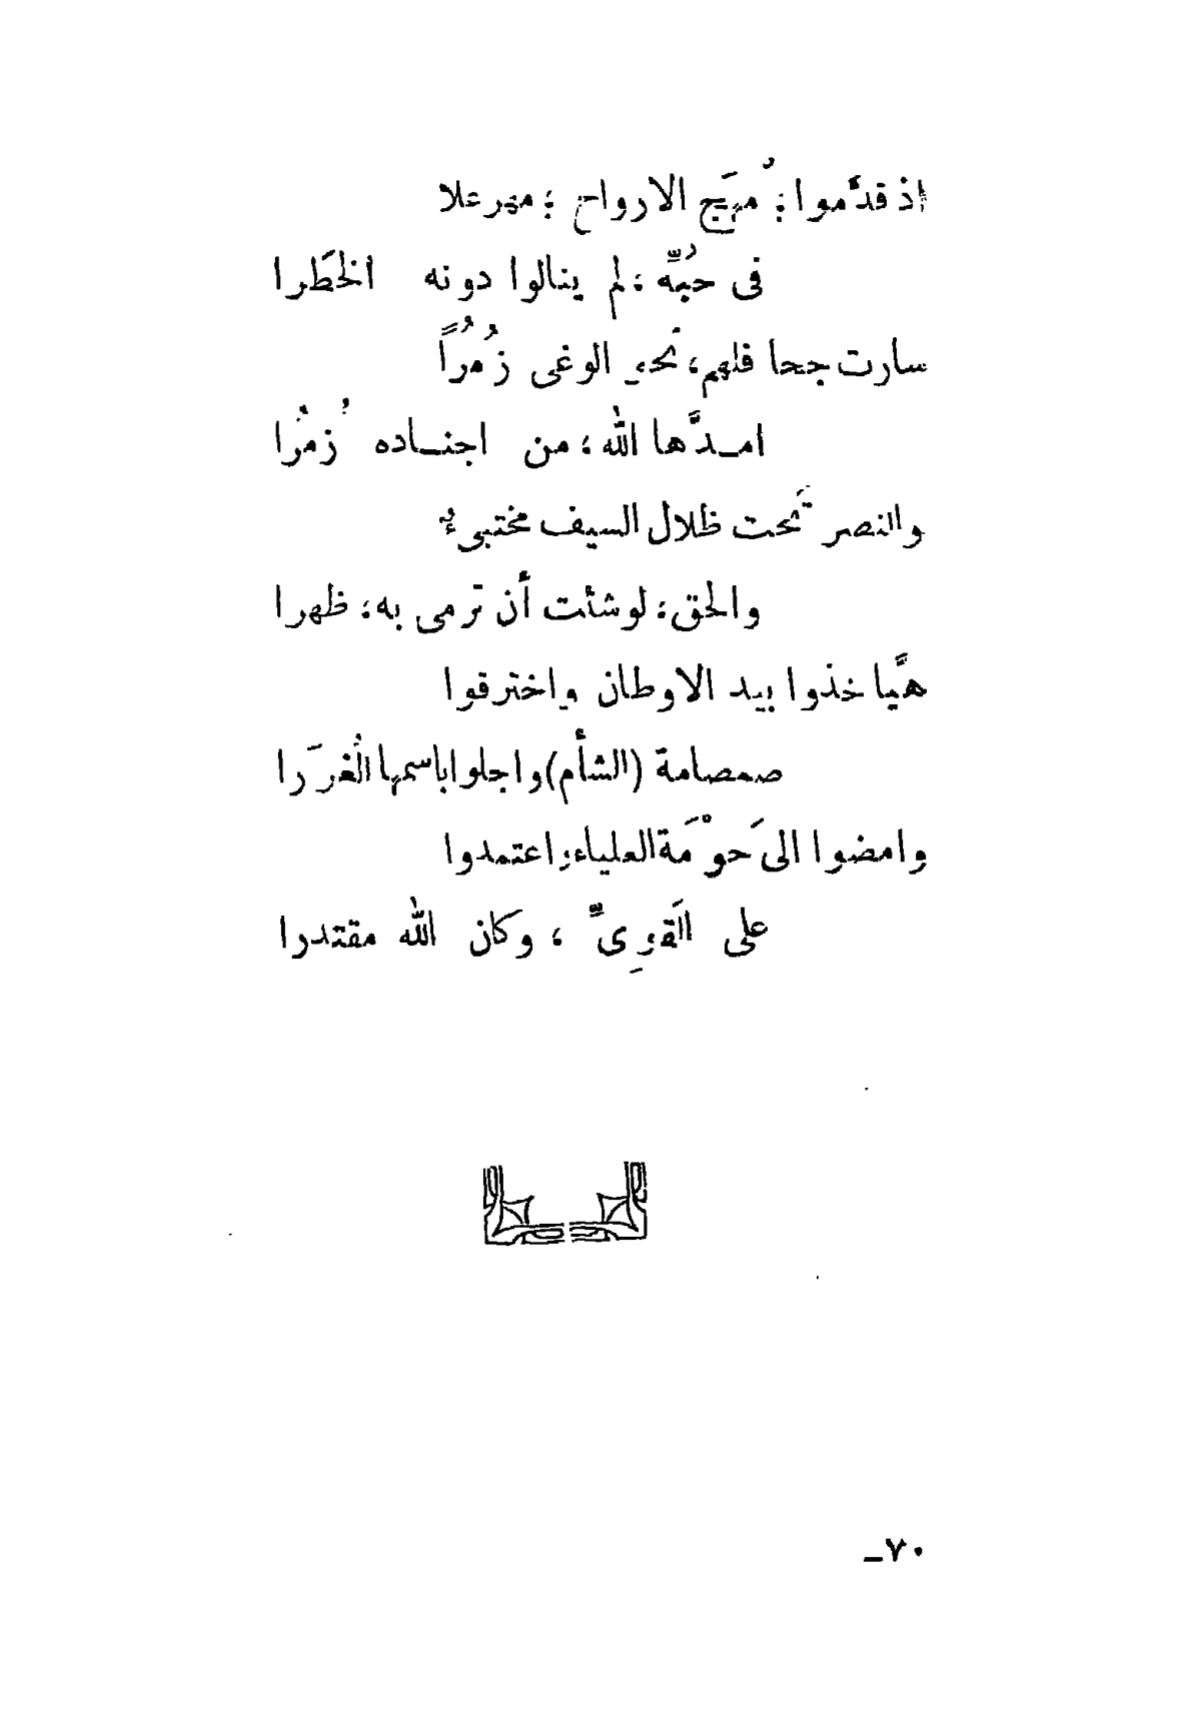 إذ قدَّموا؛ مُهَج الارواح ؛ مهر علا
فى حُبِّه ، لم ينالوا دونه الخَطَرا
سارت جحافلهم، نحو الوغى زُمُراً
امـدَّها الله ؛ من اجنـاده زُمَرا
والنصر تَحت ظلال السيف مختبىءٌ
والحق؛ لو شئت أن ترمى به؛ ظهرا
هيَّا خذوا بيد الاوطان واخترقوا
صمصامة (الشأم) واجلوا باسمها الغُرَرا
وامضوا الى حَوْمَة العلياء واعتمدوا
على القَوِىِّ ، وكان الله مقتدرا
٧٠ـ